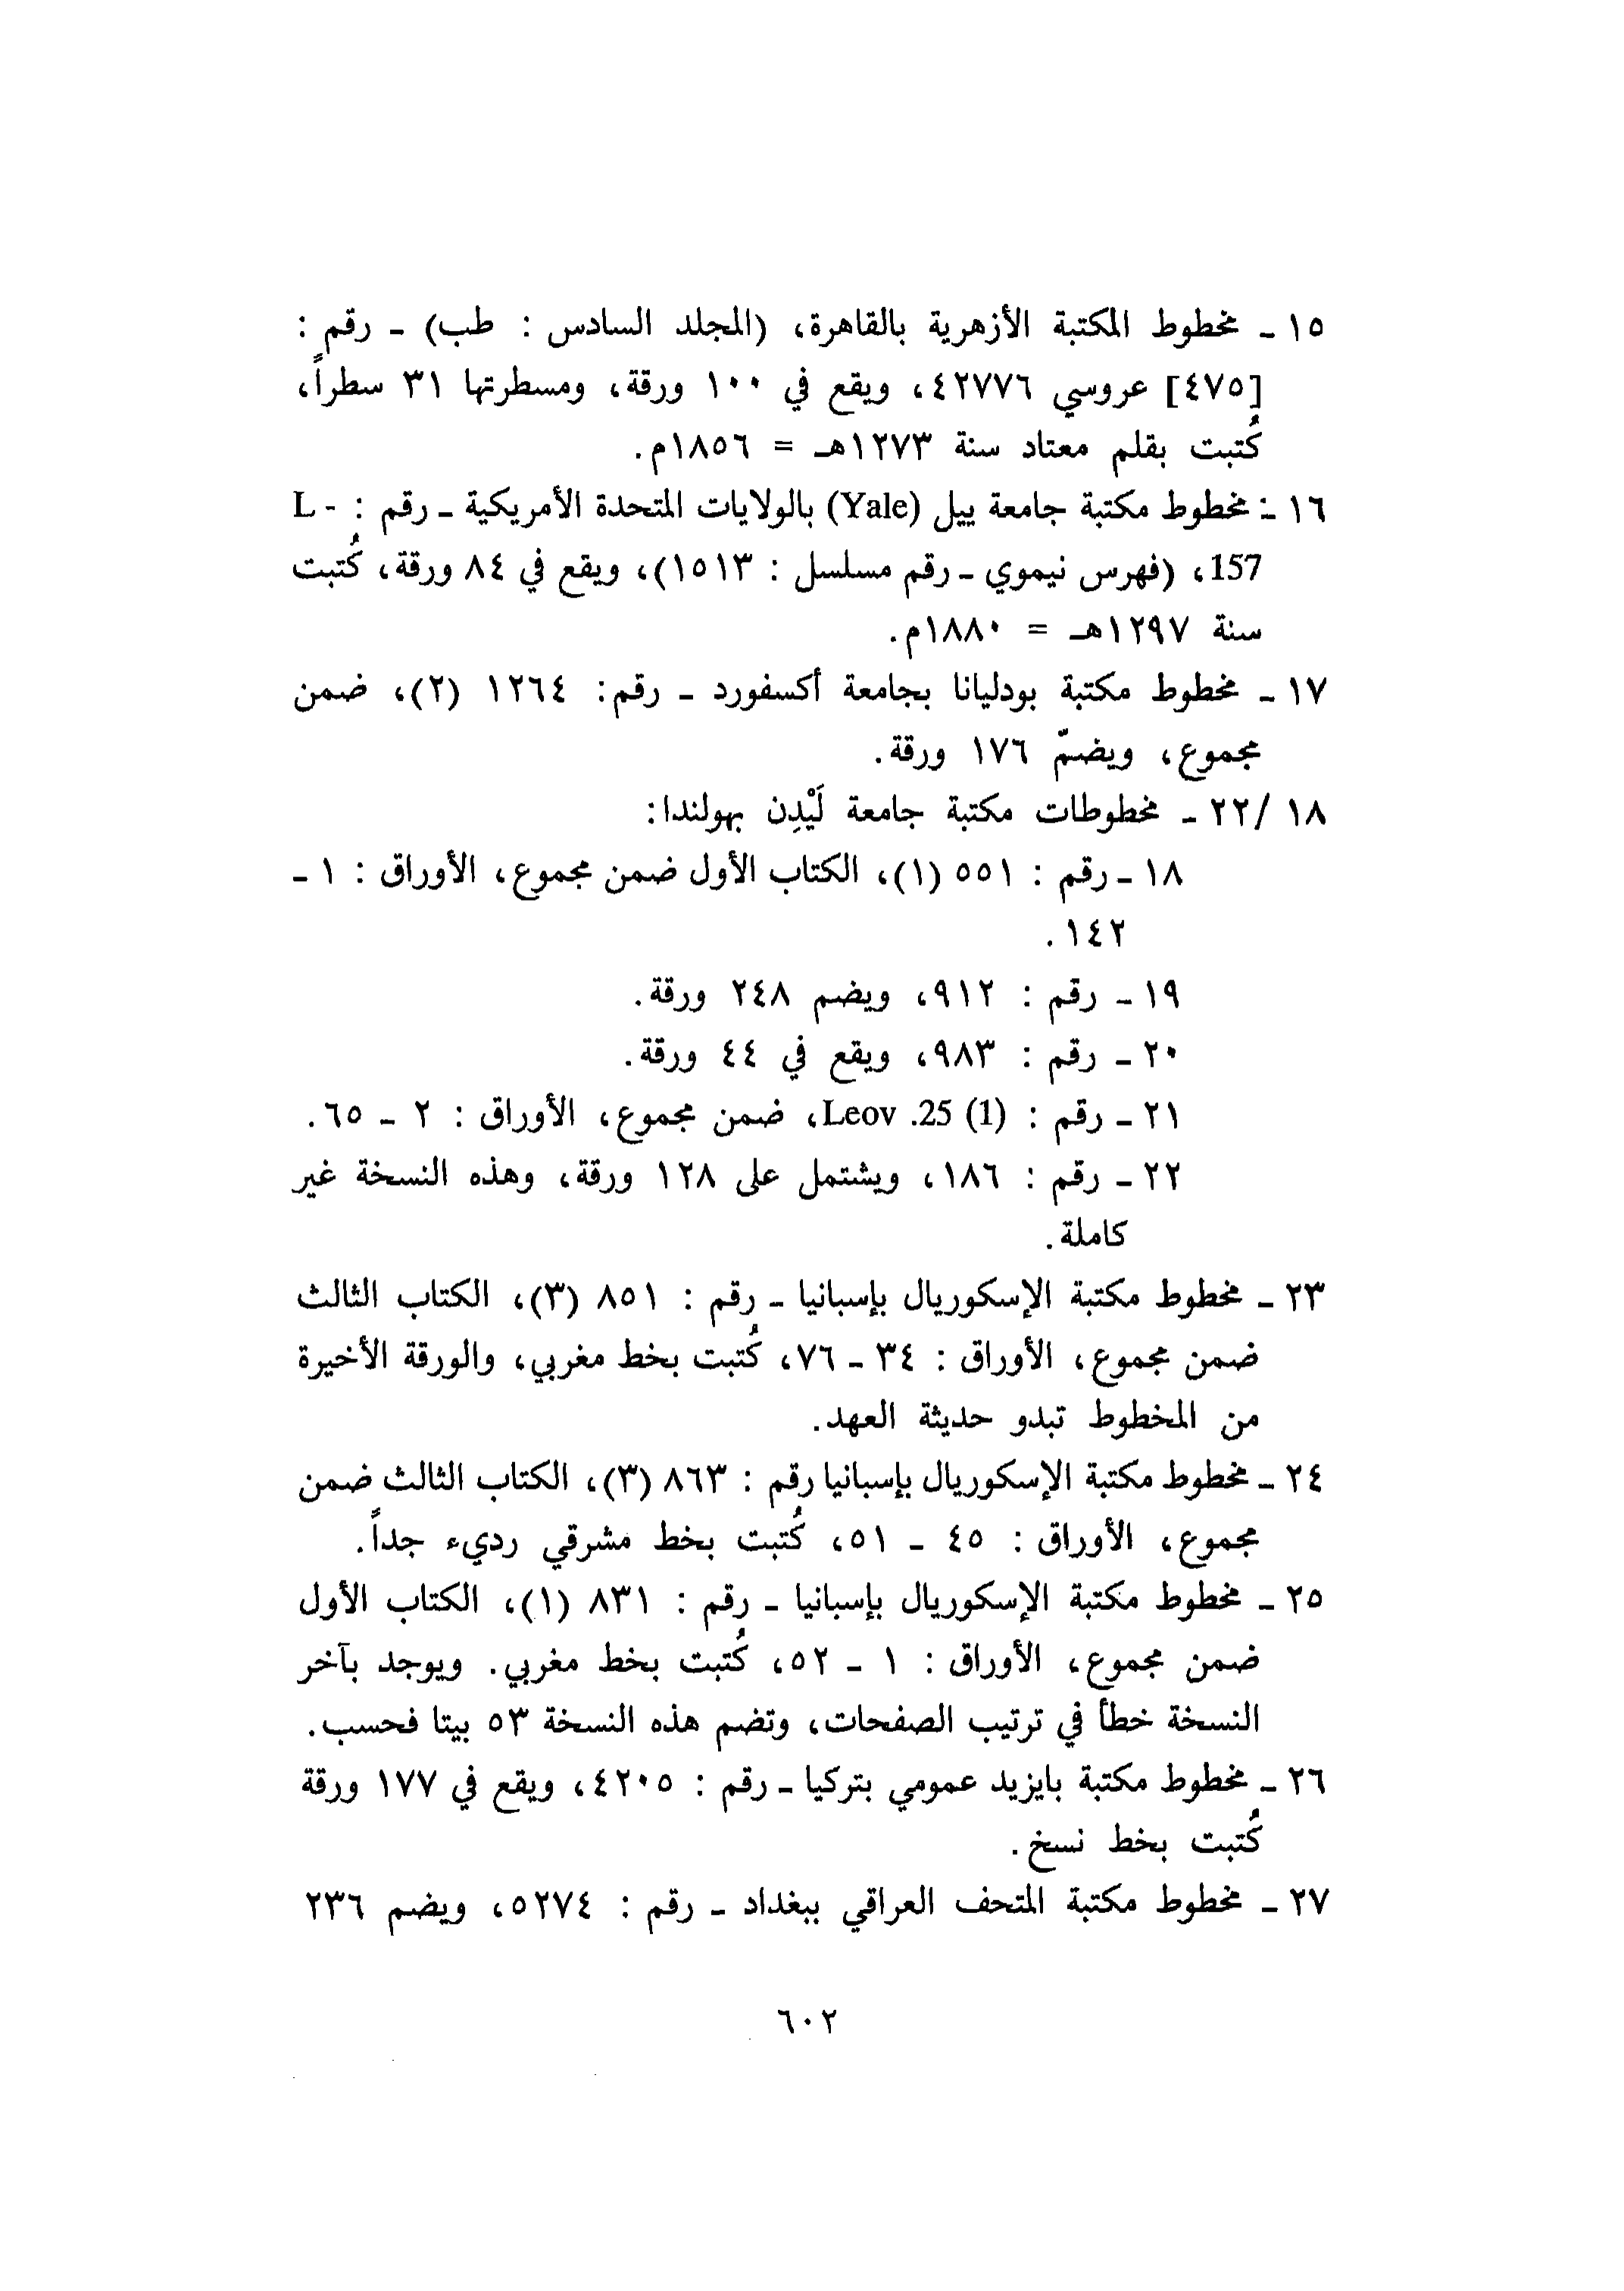 ١٥ ـ مخطوط المكتبة الأزهرية بالقاهرة، (المجلد السادس : طب) ـ رقم :
[٤٧٥] عروسي ٤٢٧٧٦، ويقع في ١٠٠ ورقة، ومسطرتها ٣١ سطراً،
كُتبت بقلم معتاد سنة ١٢٧٣هـ = ١٨٥٦م.
١٦ ـ مخطوط مكتبة جامعة ييل (Yale) بالولايات المتحدة الأمريكية ـ رقم : L -
157، (فهرس نيموي ـ رقم مسلسل : ١٥١٣)، ويقع في ٨٤ ورقة، كُتبت
سنة ١٢٩٧هـ = ١٨٨٠م.
١٧ ـ مخطوط مكتبة بودليانا بجامعة أكسفورد ـ رقم: ١٢٦٤ (٢)، ضمن
مجموع، ويضمّ ١٧٦ ورقة.
١٨ /٢٢ ـ مخطوطات مكتبة جامعة لَيْدِن بهولندا:
١٨ ـ رقم : ٥٥١ (١)، الكتاب الأول ضمن مجموع، الأوراق : ١ ـ
١٤٢.
١٩ ـ رقم : ٩١٢، ويضم ٢٤٨ ورقة.
٢٠ ـ رقم : ٩٨٣، ويقع في ٤٤ ورقة.
٢١ ـ رقم : Leov .25 (1)، ضمن مجموع، الأوراق : ٢ ـ ٦٥.
٢٢ ـ رقم : ١٨٦، ويشتمل على ١٢٨ ورقة، وهذه النسخة غير
كاملة.
٢٣ ـ مخطوط مكتبة الإسكوريال بإسبانيا ـ رقم : ٨٥١ (٣)، الكتاب الثالث
ضمن مجموع، الأوراق : ٣٤ ـ ٧٦، كُتبت بخط مغربي، والورقة الأخيرة
من المخطوط تبدو حديثة العهد.
٢٤ ـ مخطوط مكتبة الإسكوريال بإسبانيا رقم : ٨٦٣ (٣)، الكتاب الثالث ضمن
مجموع، الأوراق : ٤٥ ـ ٥١، كُتبت بخط مشرقي رديء جداً.
٢٥ ـ مخطوط مكتبة الإسكوريال بإسبانيا ـ رقم : ٨٣١ (١)، الكتاب الأول
ضمن مجموع، الأوراق : ١ ـ ٥٢، كُتبت بخط مغربي. ويوجد بآخر
النسخة خطأ في ترتيب الصفحات، وتضم هذه النسخة ٥٣ بيتا فحسب.
٢٦ ـ مخطوط مكتبة بايزيد عمومي بتركيا ـ رقم : ٤٢٠٥، ويقع في ١٧٧ ورقة
كُتبت بخط نسخ.
٢٧ ـ مخطوط مكتبة المتحف العراقي ببغداد ـ رقم : ٥٢٧٤، ويضم ٢٣٦
٦٠٢